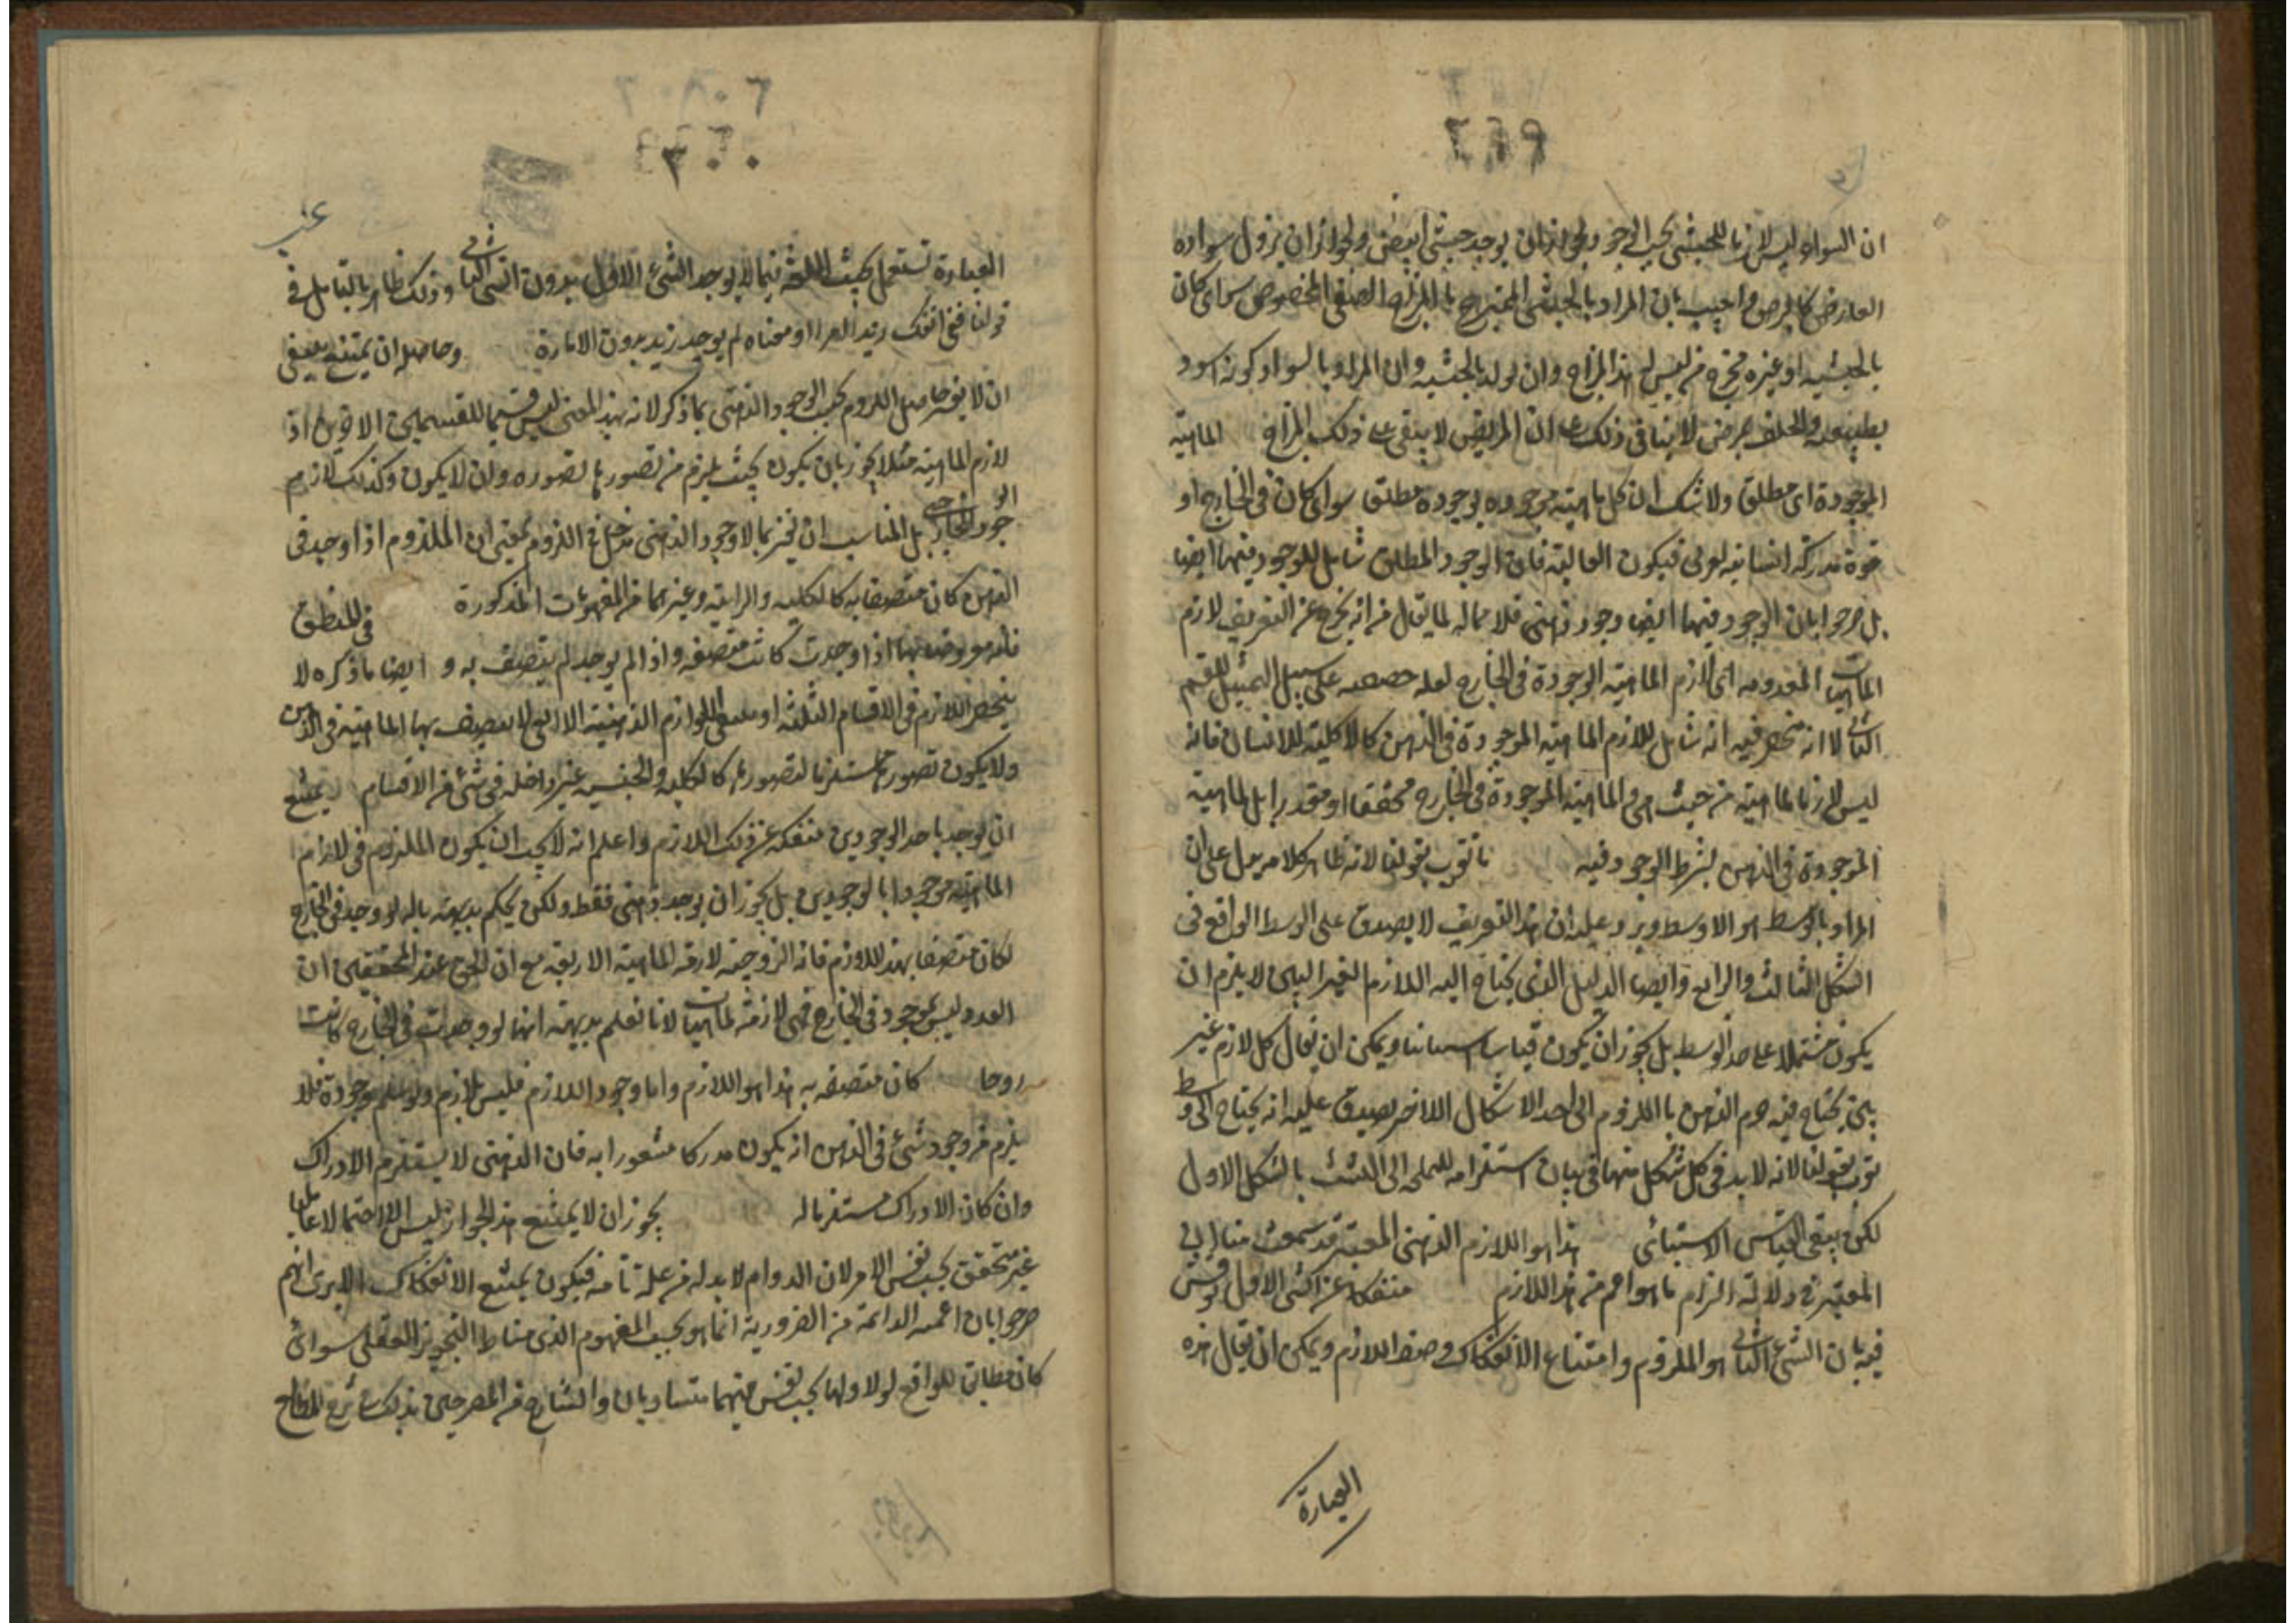 ان السواد ليس لازما للحبشى بحسب الوجود لجواز ان يوجد حبشى ابيض ولجواز ان يزول سواده
العارض كالبرص واجيب بان المراد بالحبشى الممتزج بالمزاج الصنفى المخصوص سواى كان
بالحبشية او غيره فخرج من ليس له هذا المزاج وان تولد بالحبشة وان المراد بالسواد كونه اسود
بطبيعته والتخلف بمرض لا ينافى ذلك على ان المريض لا يبقى على ذلك المزاج الماهية
الموجودة اى مطلق ولا شك ان كل ماهية موجوده بوجوده مطلق سواى كان فى الخارج او
قوة مدركة انسانية او فيكون العالية فان الوجود المطلق شامل للوجود فيهما ايضا
بل صرحوا بان الوجود فيهما ايضا وجود ذهنى فلا لما يقال من انه يخرج عن التعريف لازم
الماهيات المعدومه اى لازم الماهية الموجودة فى الخارج لعله على سبيل التمثيل للقسم
الثانى لا انه منحصر فيه انه شامل للازم الماهية الموجودة فى الذهن كالاكلية للانسان فانه
ليس لازما للماهية من حيث هى والماهية الموجودة فى الخارج محققا او مقدرا بل لماهية
الموجودة فى الذهن بشرط الوجود فيه ما تقرب بقولنا لانه ظاهر كلامه يدل على ان
المراد بالوسط هو الاوسط ويرد عليه ان هذا التعريف لا يصدق على الوسط الواقع فى
الشكل الثالث والرابع وايضا الدليل الذى يحتاج اليه اللازم الغير البين لا يلزم ان
يكون مشتملا على حد الوسط بل يجوز ان يكون قياسا استثنائيا ويمكن ان يقال كل لازم غير
بين يحتاج فيه جزم الذهن باللزوم الى احد الاشكال الاخر يصدق عليه انه يحتاج الى وسط
بقولنا لانه لا بد فى كل شكل منها فى بيان استلزامه الى التشبث بالشكل الاول
لكن يبقى القياس الاستثنائى هذا هو اللازم الذهنى المعتبر قد سمعت منا ان
المعتبر فى دلالة التزام ما هو اعم من هذا اللازم منفكا عن الشى الاول نوقش
فيه بان الشى الثانى هو الملزوم وامتناع الانفكاك وصف اللازم ويمكن ان يقال هذه
العبارة
العبارة تستعمل بحسب اللغة فيما لا يوجد الشئ الاول بدون الشى الثانى وذلك ظاهر بالتامل فى
قولنا فتى انفك زيد الامارة معناه لم يوجد زيد بدون الامارة وحاصله ان يمتنع ينبغى
ان لا يفسر حاصل اللزوم بحسب الوجود الذهنى بما ذكر لانه بهذا المعنى ليس قسيما للقسمين الاخرين اذ
لازم الماهية مثلا يجوز بان يكون بحيث يلزم من تصورها تصوره وان لا يكون وكذلك لازم
الوجود الخارجى بل المناسب ان يفسر بما لا وجود الذهنى مدخل فى اللزوم بمعنى ان الملزوم اذا وجد فى
الذهن كان متصفا به كالكلية والذاتية وغيرهما من المفهومات المذكورة فى المنطق
فان معروضاتها اذا وجدت كانت متصفة واذا لم يوجد لم يتصف به و ايضا ما ذكره لا
ينحصر اللازم فى الاقسام الثلثة او يبقى اللوازم الذهنية الا التى لا يتصف بها الماهية فى الذهن
ولا يكون تصورها مستلزما لتصورها كالكلية والجنسية غير داخله فى شئ من الاقسام يمتنع
ان يوجد باحد الوجودين منفكه عن ذلك اللازم واعلم انه لا يجب ان يكون الملزوم فى لازم
الماهية موجودا بالوجودين بل يجوز ان يوجد ذهنى فقط ولكن يحكم بديهة بانه لو وجد فى الخارج
لكان متصفا بهذا اللازم فان الزوجية لازمة لماهية الاربعة مع ان الحق عند المحققين ان
العدد ليس بموجود فى الخارج فهى لازمة لماهيات لانا نعلم بديهة انها لو وجدت فى الخارج كانت
زوجا كان متصفه به هذا هو اللازم واما وجود اللازم فليس بلازم ولو سلم وجودة فلا
يلزم من وجود شئ فى الذهن انه يكون مدركا مشعورا به فان الذهنى لا يستلزم الادراك
وان كان الادراك مستلزما له يجوز ان لا يمتنع هذا الجواز ليس الا احتمالا عقليا
غير متحقق بحسب نفس الامر لان الدوام لا بد له من علة تامه فيكون يمتنع الانفكاك الا يرى انهم
صرحوا بان اعمية الدائمة من الضرورية انما هو بحسب المفهوم الذى مناط التجويز العقلى سوائ
كان مطابق للواقع او لا واما بحسب نفس فهما متساويان والشارح من المصرحين بذلك